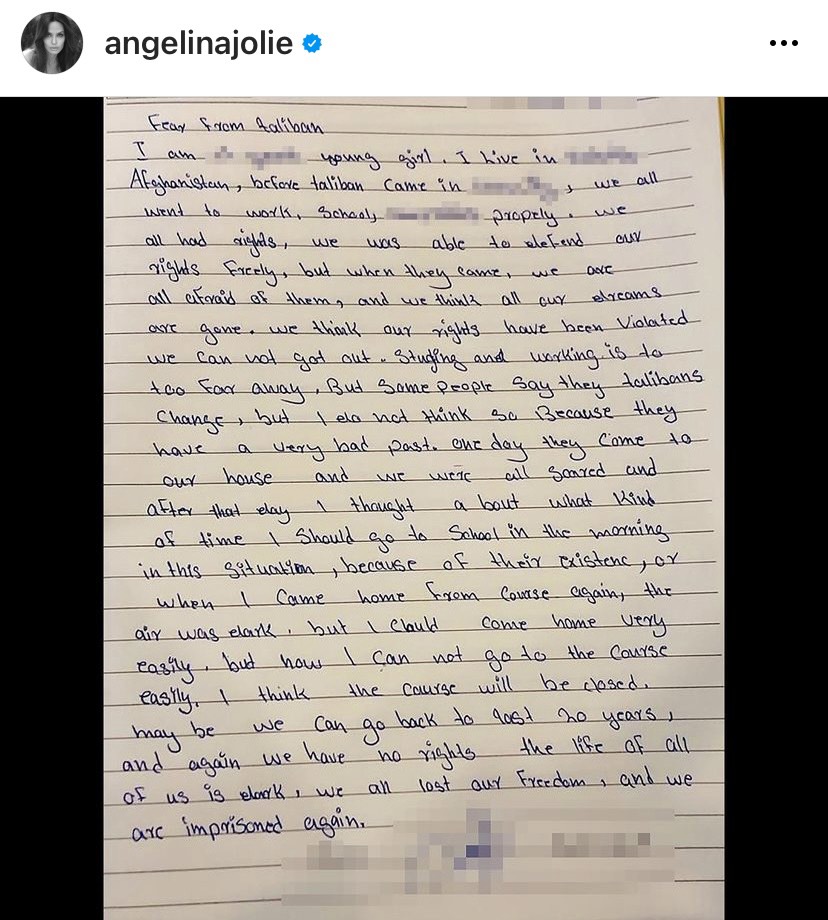 angelinajolie
Fear from taliban
I am young girl. I live in
Afghanistan, before taliban came in , we all
went to work, School, propely. we
all had rights, we was able to defend our
rights freely, but when they came, we are
all afraid of them, and we think all our dreams
are gone. we think our rights have been violated
we can not got out. Studing and working is to
too far away. But Some people say they talibans
change, but I do not think so Because they
have a very bad past. one day they come to
our house and we were all scared and
after that day I thought a bout what kind
of time I should go to School in the morning
in this situation, because of their existenc, or
when I came home from course again, the
air was dark. but I could come home very
easily. but now I can not go to the course
easily. I think the course will be closed.
may be we can go back to last 20 years,
and again we have no rights the life of all
of us is dark, we all lost our freedom, and we
are imprisoned again.